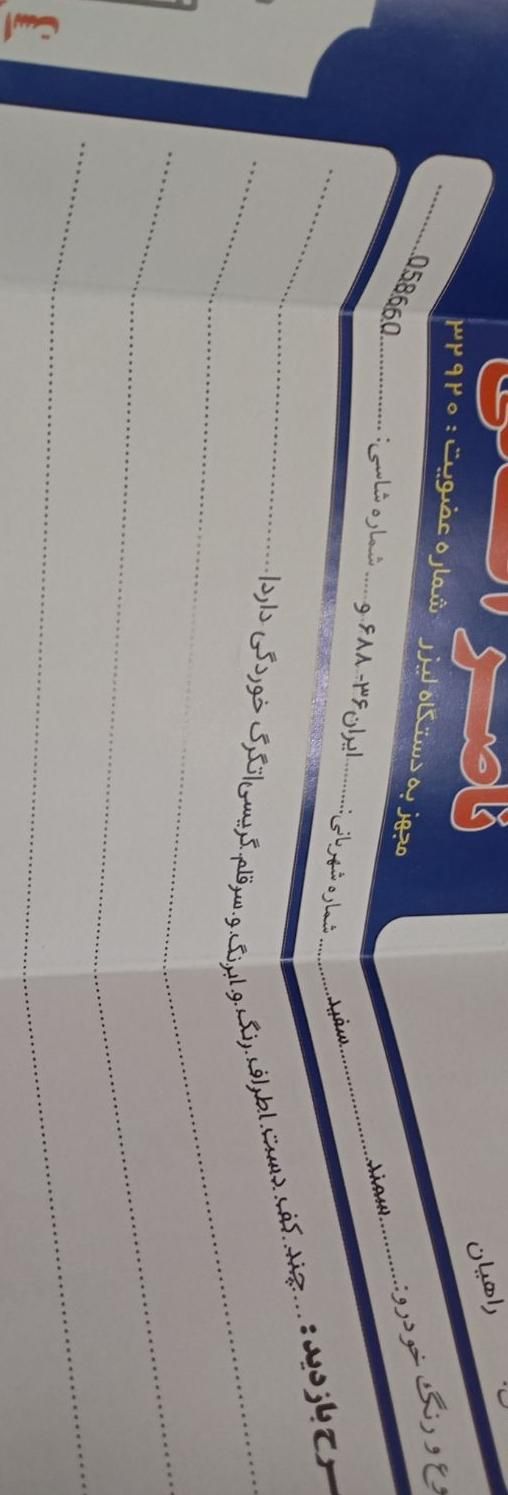 ناصر
مجهز به دستگاه لیزر شماره عضویت: ۳۲۹۲۰
راهیان
وع و رنگ خودرو: سمند سفید شماره شهربانی: ایران ۳۶-۶۸۸ و شماره شاسی: 058660
رح بازدید: چند کف دست اطراف رنگ و ابرنگ و سرقلم گریسی اتگرگ خوردگی دارد